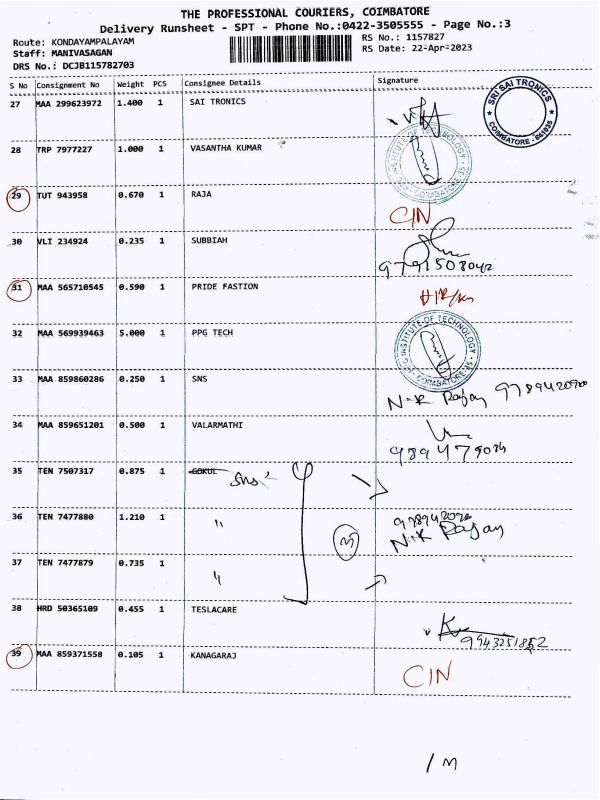 THE PROFESSIONAL COURIERS, COIMBATORE
Delivery Runsheet - SPT - Phone No.:0422-3505555 - Page No.:3
Route: KONDAYAMPALAYAM RS No.: 1157827
Staff: MANIVASAGAN RS Date: 22-Apr-2023
DRS No.: DCJB115782703
S No Consignment No Weight PCS Consignee Details Signature
27 MAA 299623972 1.400 1 SAI TRONICS
SRI SAI TRONICS COIMBATORE - 641035
28 TRP 7977227 1.000 1 VASANTHA KUMAR
INSTITUTE OF TECHNOLOGY COIMBATORE-35
29 TUT 943958 0.670 1 RAJA
CIN
30 VLI 234924 0.235 1 SUBBIAH
9791503042
31 MAA 565710545 0.590 1 PRIDE FASTION
32 MAA 569939463 5.000 1 PPG TECH
INSTITUTE OF TECHNOLOGY COIMBATORE-35
33 MAA 859860286 0.250 1 SNS
N.K Rajan
34 MAA 859651201 0.500 1 VALARMATHI
35 TEN 7507317 0.875 1 GOKUL SNS
36 TEN 7477880 1.210 1 "
N.K Rajan
37 TEN 7477879 0.735 1 "
38 HRD 50365109 0.455 1 TESLACARE
39 MAA 859371558 0.105 1 KANAGARAJ
CIN
/ M